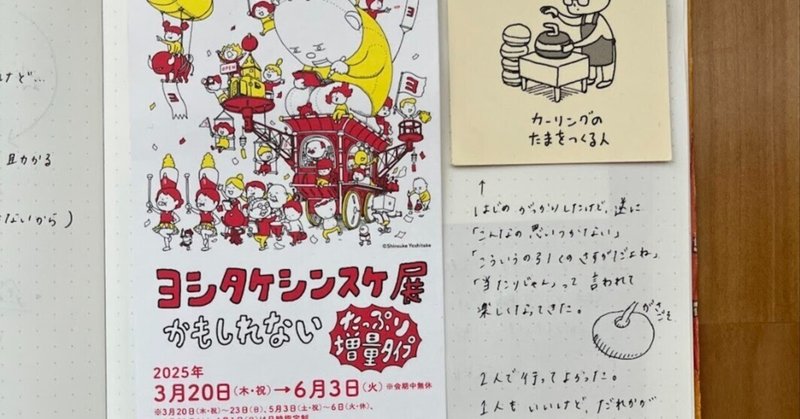 けど…
且力かる
ないから)
OPEN
©Shinsuke Yoshitake
ヨシタケシンスケ展
かもしれない
たっぷり
増量タイプ
2025年
3月20日(木・祝)→6月3日(火)※会期中無休
※3月20日(木・祝)〜23日(日)、5月3日(土・祝)〜6日(火・休)、
カーリングの
たまをつくる人
↑
はじめ がっかりしたけど、逆に
「こんなの思いつかない」
「こういうの引くのさすがだよね」
「当たりじゃん」って言われて
楽しくなってきた。
がさごそ
2人で行ってよかった。
1人もいいけど、だれかが